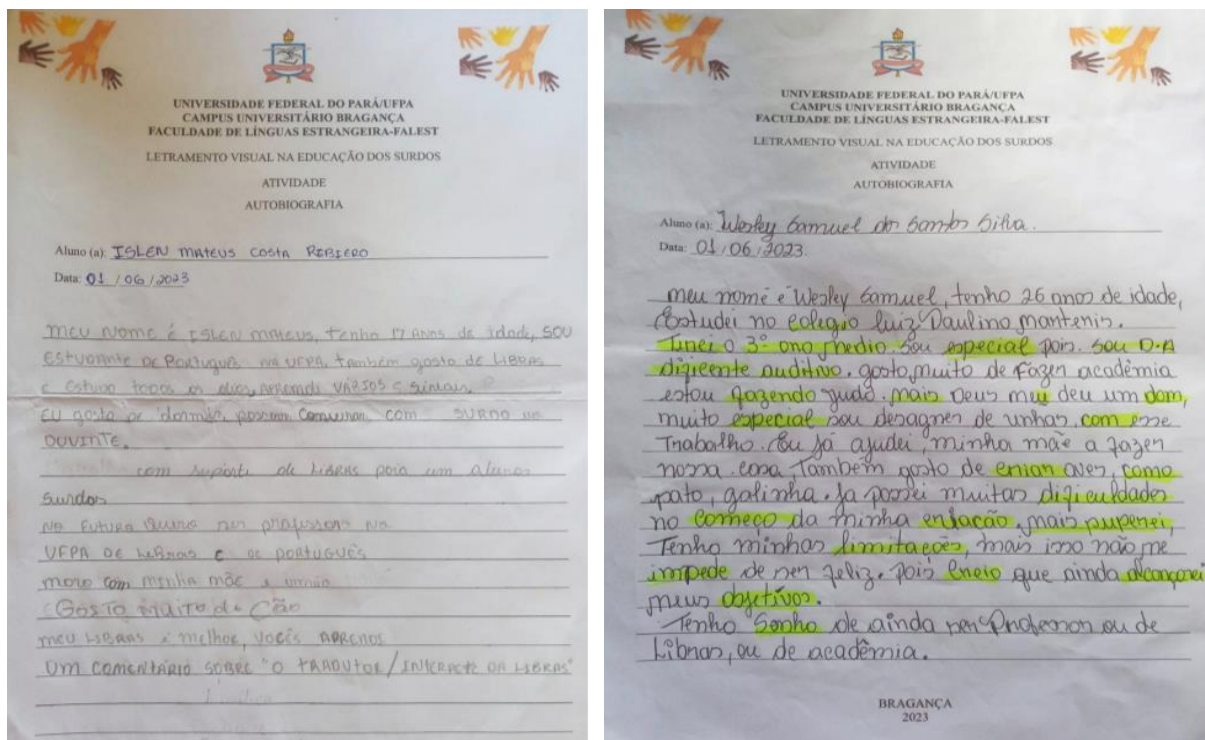 UNIVERSIDADE FEDERAL DO PARÁ/UFPA
CAMPUS UNIVERSITÁRIO BRAGANÇA
FACULDADE DE LÍNGUAS ESTRANGEIRA-FALEST
LETRAMENTO VISUAL NA EDUCAÇÃO DOS SURDOS
ATIVIDADE
AUTOBIOGRAFIA
Aluno (a): ISLEN MATEUS COSTA RIBIERO
Data: 01/06/2023
MEU NOME é ISLEN MATEUS, tenho 17 Anos de idade, SOU
Estudante de Português na UFPA, também gosto de LIBRAS
e Estudo todos os dias, aprendi VÁRIOS e Sinais
EU gosto de dormir, Comunicar com SURDO
OUVINTE.
com suporte de LIBRAS para um alunos
Surdos
NO Futuro Quero ser professor NA
UFPA DE LIBRAS E DE PORTUGUÊS
moro com minha mãe e irmão
Gosto muito de Cão
meu LIBRAS é melhor, vocês APRENDE
UM COMENTÁRIO SOBRE "O TRADUTOR/INTERPRETE DA LIBRAS"
UNIVERSIDADE FEDERAL DO PARÁ/UFPA
CAMPUS UNIVERSITÁRIO BRAGANÇA
FACULDADE DE LÍNGUAS ESTRANGEIRA-FALEST
LETRAMENTO VISUAL NA EDUCAÇÃO DOS SURDOS
ATIVIDADE
AUTOBIOGRAFIA
Aluno (a): Wesley Samuel dos Santos Silva.
Data: 01/06/2023.
meu nome é Wesley Samuel, tenho 26 anos de idade,
Estudei no colegio luiz Paulino mantenis.
Tinei o 3º ano medio sou especial pois. sou D.A
dificente auditivo. gosto muito de Fazer acadêmia
estou fazendo mais Deus meu deu um dom,
muito especial sou desagner de unhas. com esse
Trabalho. Eu já ajudei, minha mãe a fazer
nossa casa Também gosto de criar aves, como
pato, galinha. Ja passei muitas dificuldades
no começo da minha mais puperei,
Tenho minhas limitações, mais isso não me
impede de ser feliz. Pois creio que ainda alcançarei
meus objetivos.
Tenho Sonho de ainda ser Professor ou de
Libras, ou de acadêmia.
BRAGANÇA
2023